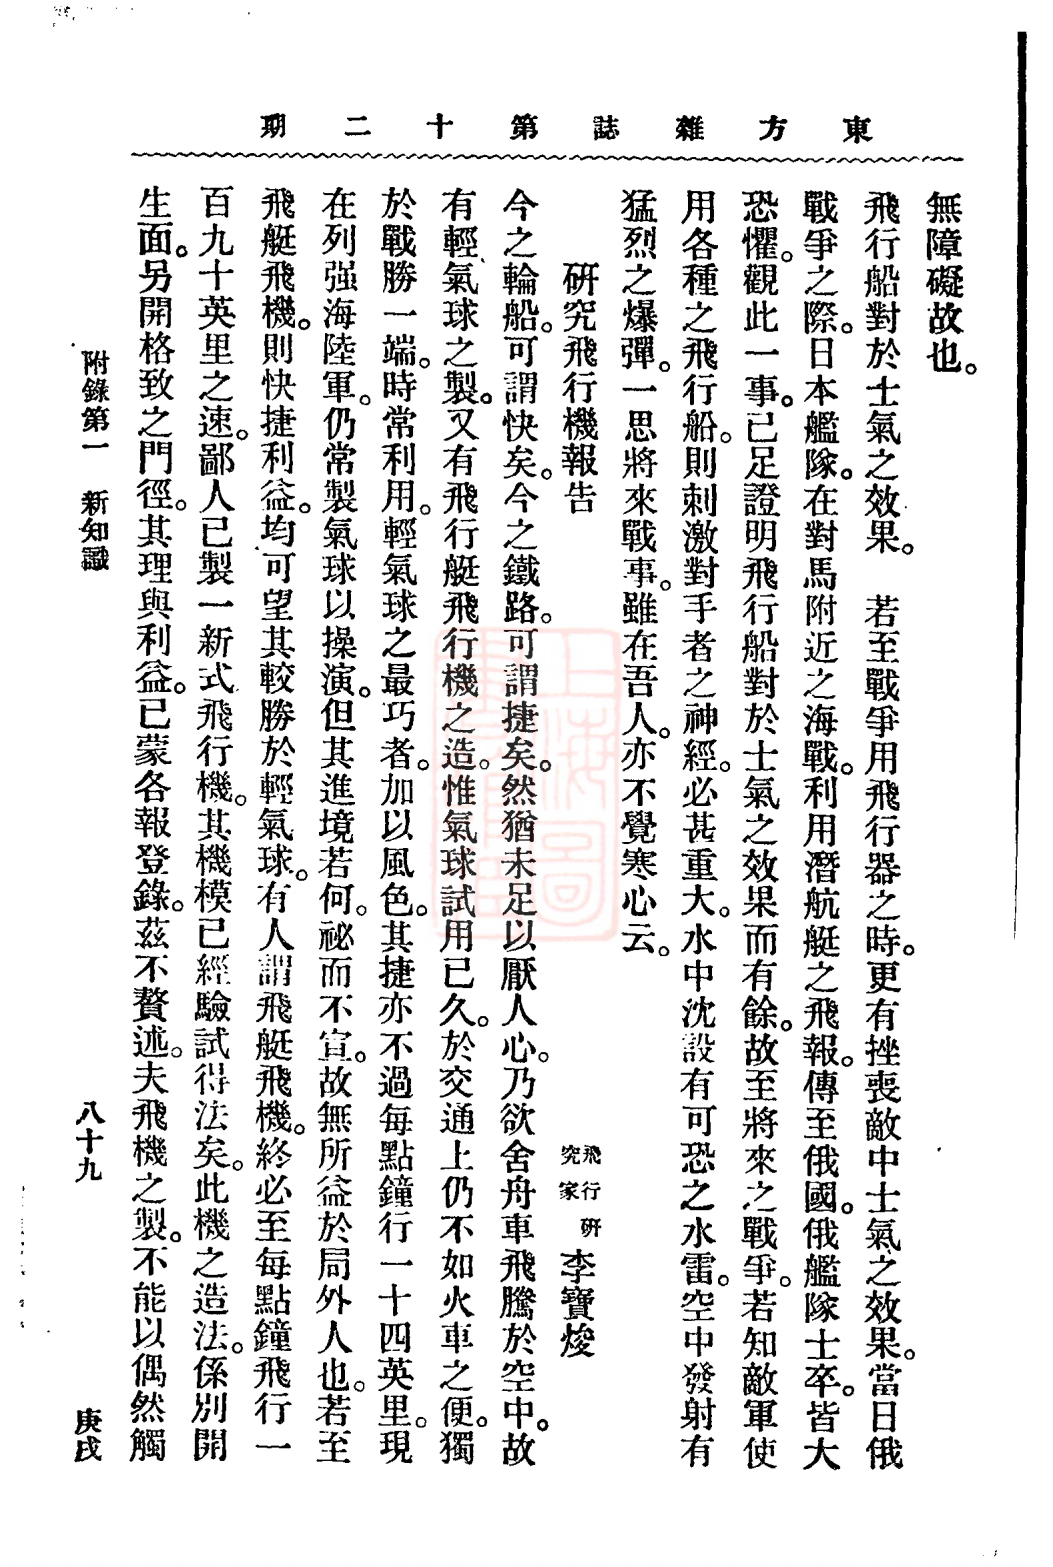 東方雜誌第十二期
無障礙故也。
飛行船對於士氣之效果。　若至戰爭用飛行器之時。更有挫喪敵中士氣之效果。當日俄
戰爭之際。日本艦隊。在對馬附近之海戰。利用潛航艇之飛報。傳至俄國。俄艦隊士卒。皆大
恐懼。觀此一事。已足證明飛行船對於士氣之效果而有餘。故至將來之戰爭。若知敵軍使
用各種之飛行船。則刺激對手者之神經。必甚重大。水中沈設有可恐之水雷。空中發射有
猛烈之爆彈。一思將來戰事。雖在吾人。亦不覺寒心云。
研究飛行機報告　飛行研究家　李寶焌
今之輪船。可謂快矣。今之鐵路。可謂捷矣。然猶未足以厭人心。乃欲舍舟車飛騰於空中。故
有輕氣球之製。又有飛行艇飛行機之造。惟氣球試用已久。於交通上仍不如火車之便。獨
於戰勝一端。時常利用。輕氣球之最巧者。加以風色。其捷亦不過每點鐘行一十四英里。現
在列强海陸軍。仍常製氣球以操演。但其進境若何。祕而不宣。故無所益於局外人也。若至
飛艇飛機。則快捷利益。均可望其較勝於輕氣球。有人謂飛艇飛機。終必至每點鐘飛行一
百九十英里之速。鄙人已製一新式飛行機。其機模已經驗試得法矣。此機之造法。係別開
生面。另開格致之門徑。其理與利益。已蒙各報登錄。茲不贅述。夫飛機之製。不能以偶然觸
附錄第一　新知識　八十九　庚戌